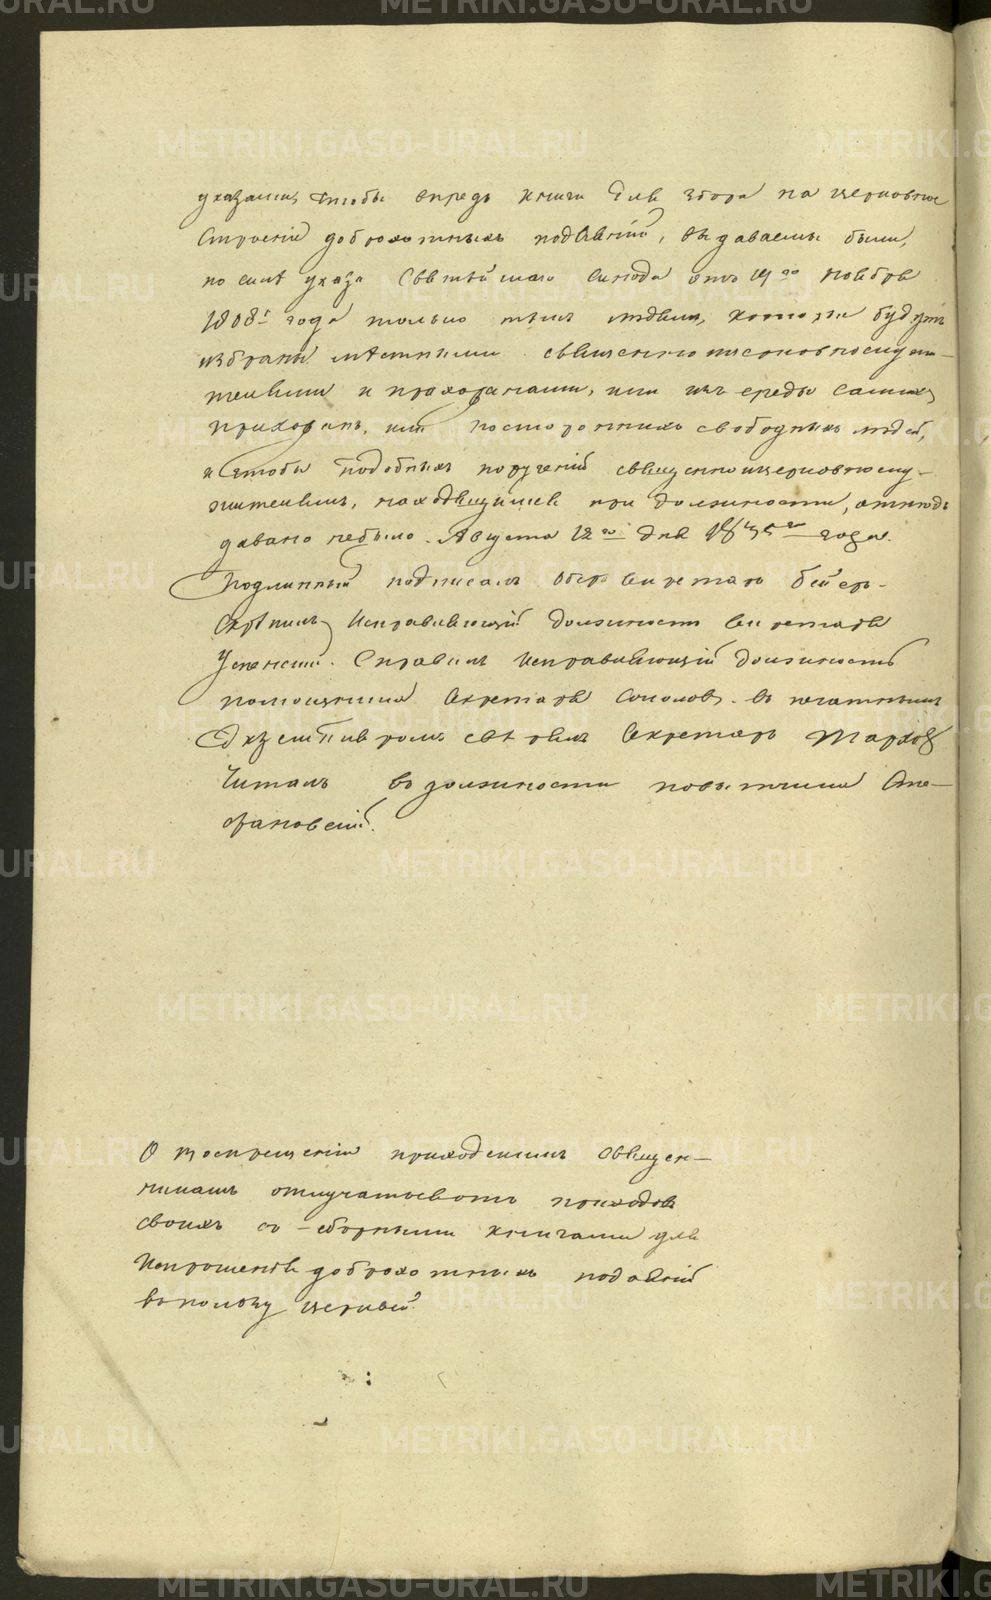 указами, чтобы впредь книги для збора на церковное
строеніе доброхотныхъ подаяній, выдаваемы были,
по силѣ указа Святѣйшаго Синода отъ 19го Ноября
1808го года только тѣмъ людямъ, которые будутъ
избраны мѣстными священноцерковнослужи-
телями и прихожанами, или изъ среды самихъ
прихожанъ, или постороннихъ свободныхъ людей,
и чтобы подобныхъ порученій священноцерковнослу-
жителямъ, находящимся при должности, отнюдь
давано небыло. Августа 12го дня 1835го года.
Подлинный подписалъ Оберъ Секретарь
Скрѣпилъ Исправляющій должность Секретаря
Успенскій. Справилъ Исправляющій должность
помощника Секретаря Соколовъ. въ печатнымъ
Экземпляромъ свѣрялъ Секретарь
Читалъ въ должности повытчика Сте-
фановскій.
О воспрещеніи приходскимъ Священ-
никамъ отлучаться отъ приходовъ
своихъ со сборными книгами для
Испрошенія доброхотныхъ подаяній
въ пользу церквей.
METRIKI.GASO-URAL.RU